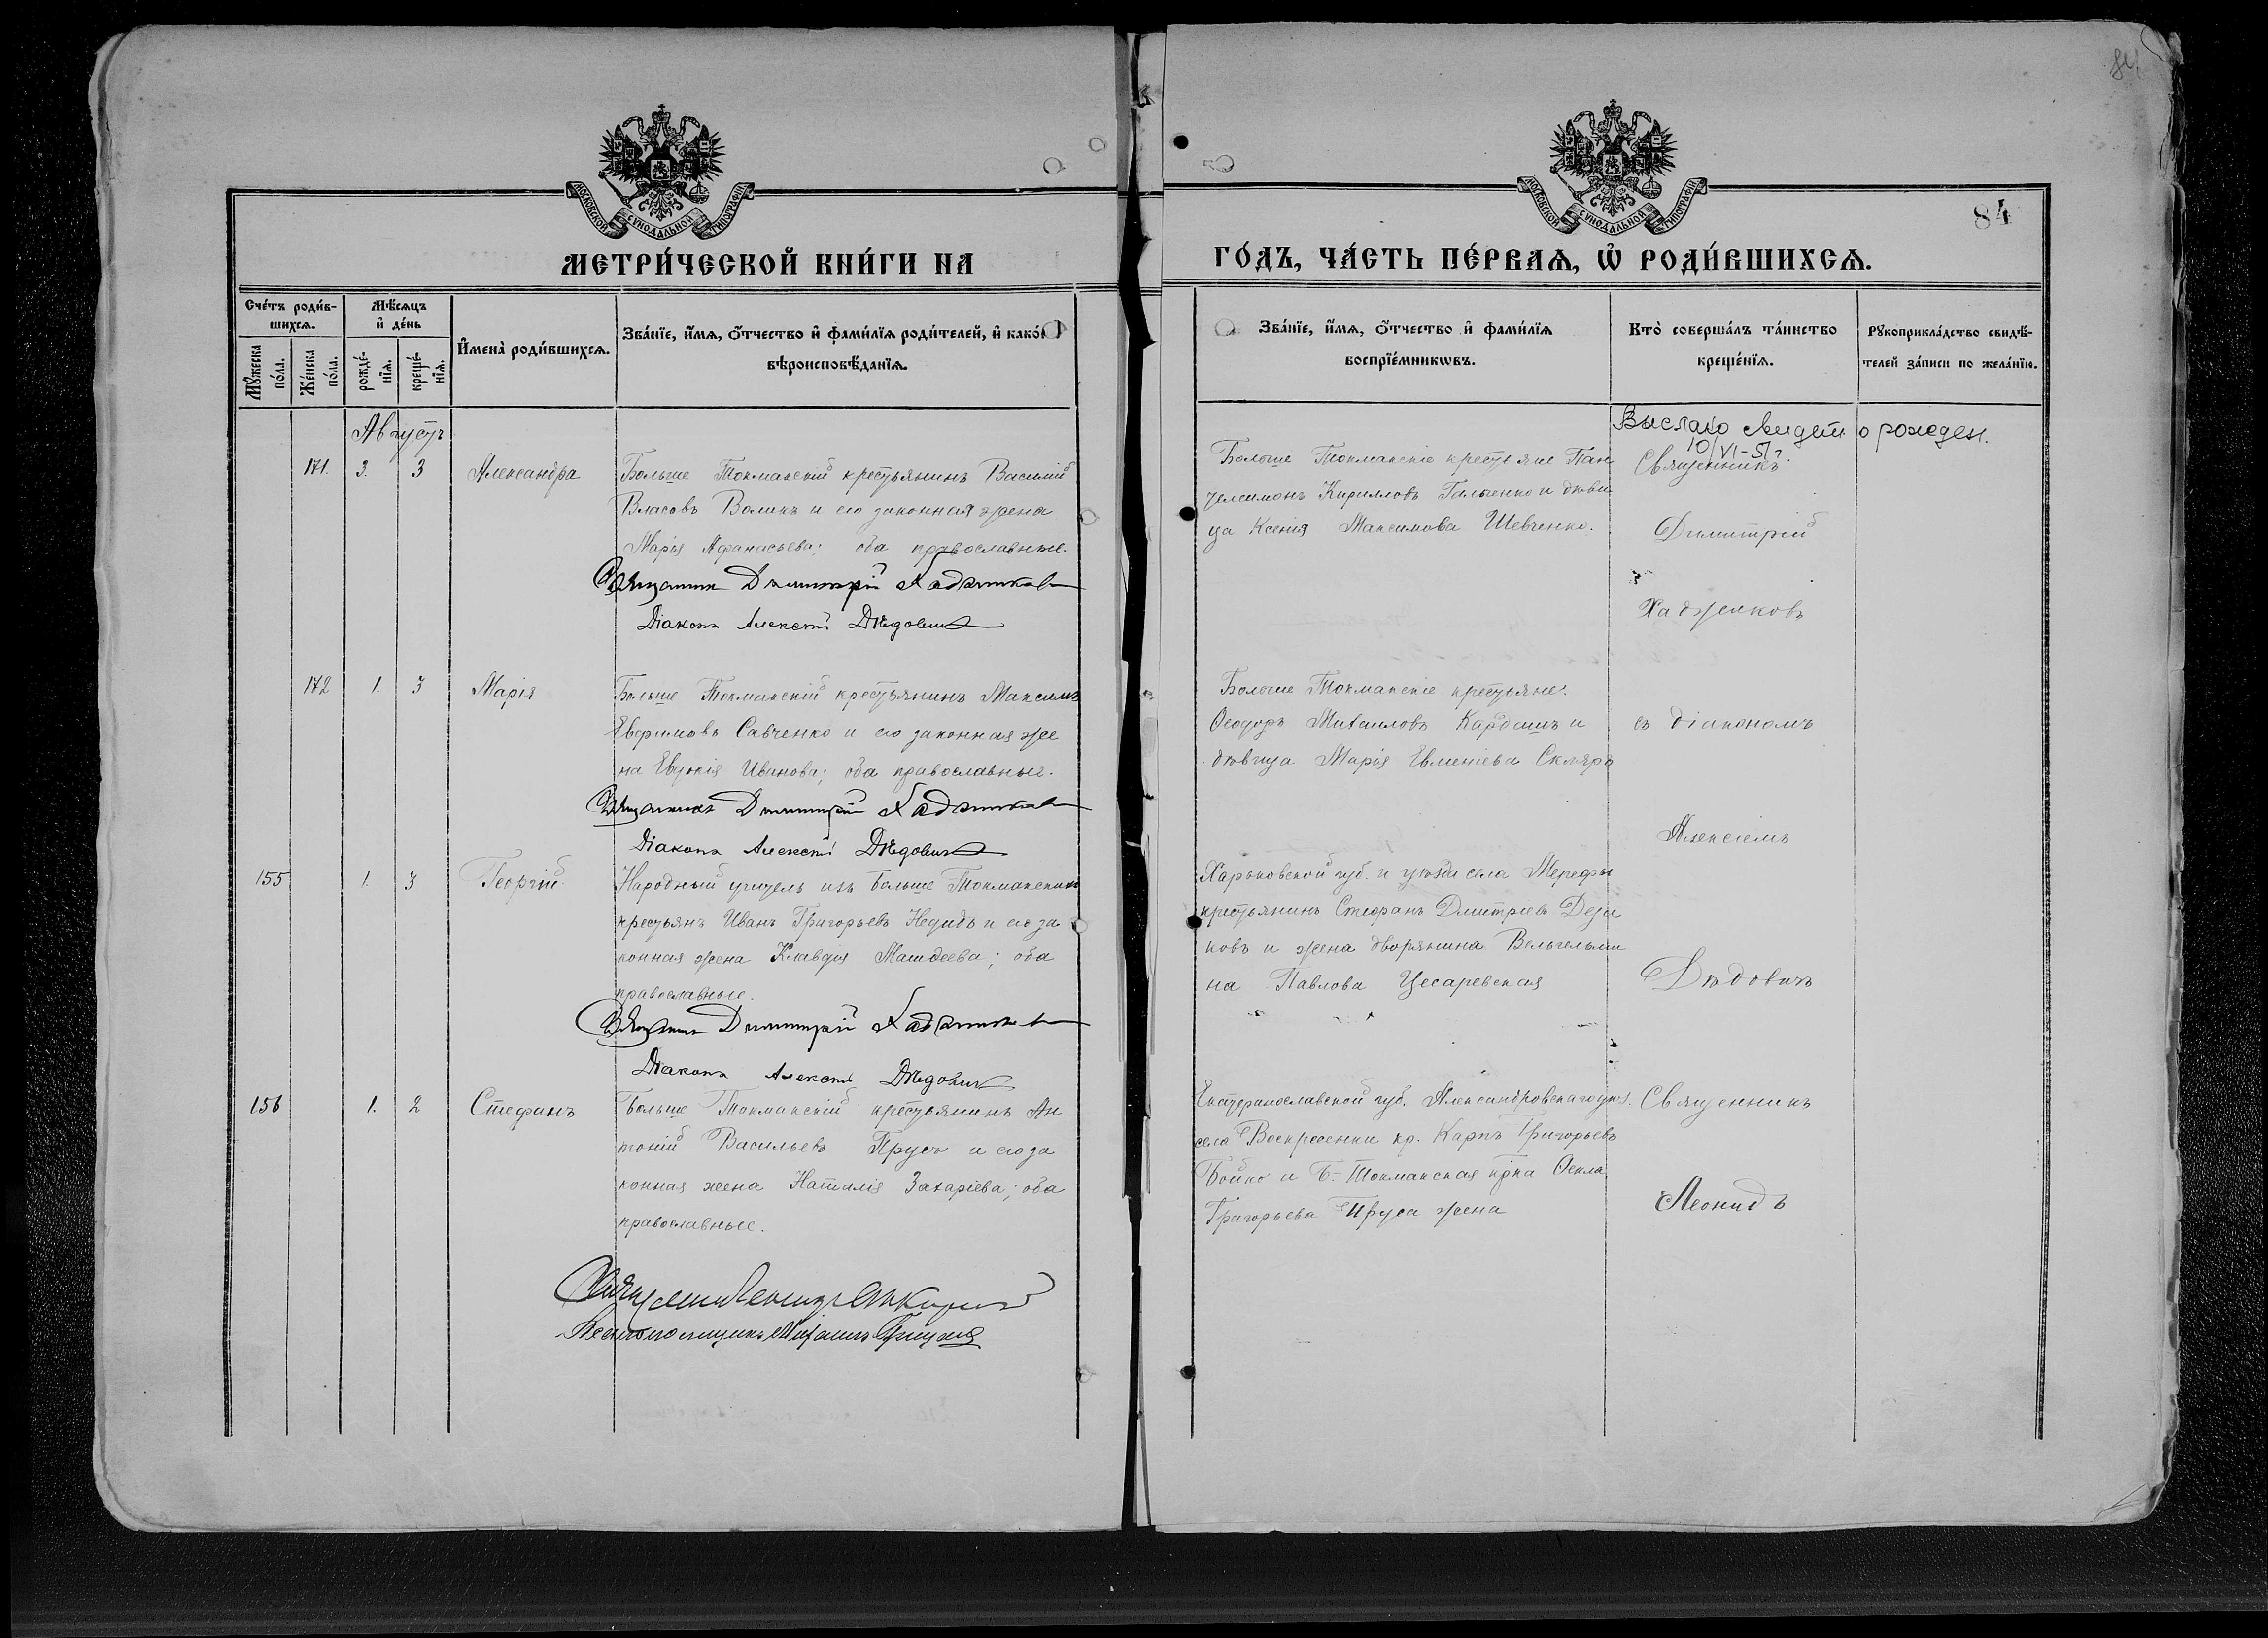 84
МОСКОВСКОЙ СѴНОДАЛЬНОЙ ТИПОГРАФІИ
МЕТРИ́ЧЕСКОЙ КНИ́ГИ НА
Сче́тъ роди́в-
шихсѧ.
Мѣ́сѧцъ
и҆ де́нь
Мꙋ́жеска
по́ла.
Же́нска
по́ла.
рожде́-
нїѧ.
креще́-
нїѧ.
И҆мена̀ роди́вшихсѧ.
Зва́нїе, и҆́мѧ, ѻ҆́тчество и҆ фами́лїѧ роди́телей, и҆ како́
вѣроисповѣ́данїѧ.
Августъ
171. 3. 3 Александра
Больше Токмакскій крестьянинъ Василій
Власовъ Воликъ и его законная жена
Марія Афанасьева; оба православные.
Священникъ Димитрій Хаджиковъ
Діаконъ Алексѣй Дѣдовичъ
172 1. 3 Марія
Больше Токмакскій крестьянинъ Максимъ
Евфимовъ Савченко и его законная же
на Евдокія Иванова; оба православные.
Священникъ Димитрій Хаджиковъ
Діаконъ Алексѣй Дѣдовичъ
155 1. 3 Георгій
Народный учитель изъ Больше Токмакскихъ
крестьянъ Иванъ Григорьевъ и его за
конная жена Клавдія; оба
православные.
Священникъ Димитрій Хаджиковъ
Діаконъ Алексѣй Дѣдовичъ
156 1. 2 Стефанъ
Больше Токмакскій крестьянинъ Ан
тоній Васильевъ Прусъ и его за
конная жена Наталія Захаріева; оба
православные.
Священникъ Леонидъ
Псаломщикъ Михаилъ
84
МОСКОВСКОЙ СѴНОДАЛЬНОЙ ТИПОГРАФІИ
ГО́ДЪ, ЧА́СТЬ ПЕ́РВАѦ, Ѡ҆ РОДИ́ВШИХСѦ.
Зва́нїе, и҆́мѧ, ѻ҆́тчество и҆ фами́лїѧ
воспрїе́мникѡвъ.
Кто̀ соверша́лъ та́инство
креще́нїѧ.
Рꙋкоприкла́дство свидѣ́-
телей за́писи по жела́нїю.
Выслано свидет. о рожден.
10/VI-51 г.
Больше Токмакскіе крестьяне Пан
телеимонъ Кирилловъ Гальченко и дѣви
ца Ксенія Максимова Шевченко.
Священникъ
Димитрій
Хаджиковъ
Больше Токмакскіе крестьяне:
Ѳеодоръ Михаиловъ Кардашъ и
дѣвица Марія Евменіева Скляръ
съ діакономъ
Алексіемъ
Харьковской губ. и уѣзда села Мерефы
крестьянинъ Стефанъ Дмитріевъ Дези
ковъ и жена дворянина Вельгельми
на Павлова Цесаревская
Дѣдовичъ
Екатеринославской губ. Александровскаго уѣз.
села Воскресенки кр. Карпъ Григорьевъ
Бойко и Б-Токмакская кр-ка Ѳекла
Григорьева Пруса жена
Священникъ
Леонидъ